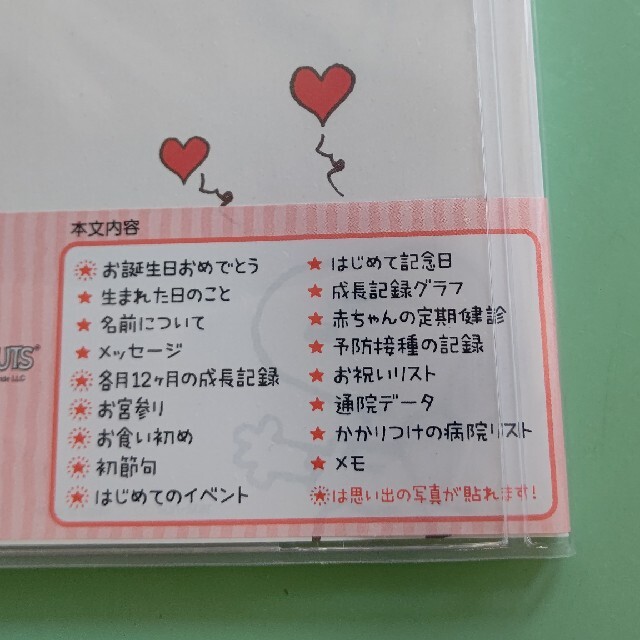 本文内容
お誕生日おめでとう
生まれた日のこと
名前について
メッセージ
各月12ヶ月の成長記録
お宮参り
お食い初め
初節句
はじめてのイベント
はじめて記念日
成長記録グラフ
赤ちゃんの定期健診
予防接種の記録
お祝いリスト
通院データ
かかりつけの病院リスト
メモ
は思い出の写真が貼れます!
UTS®
LLC